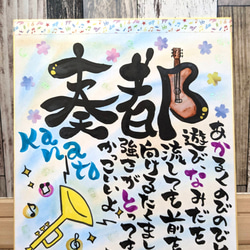 奏都
Kanato
あかるくのびのびと
遊びなみだを
流しても前
向けるたくまし
強さがとって
かっこいいよ